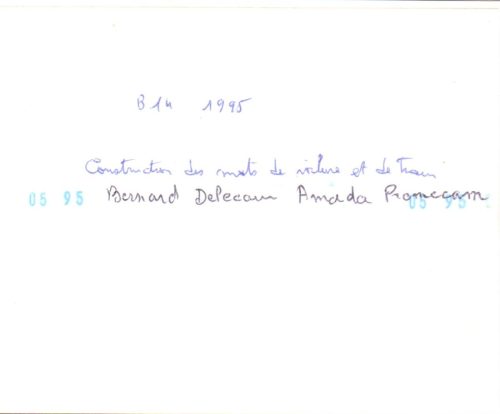 B14 1995
Construction des mots de voiture et de Train
05 95 Bernard Delecaum Amada Promecam 05 95